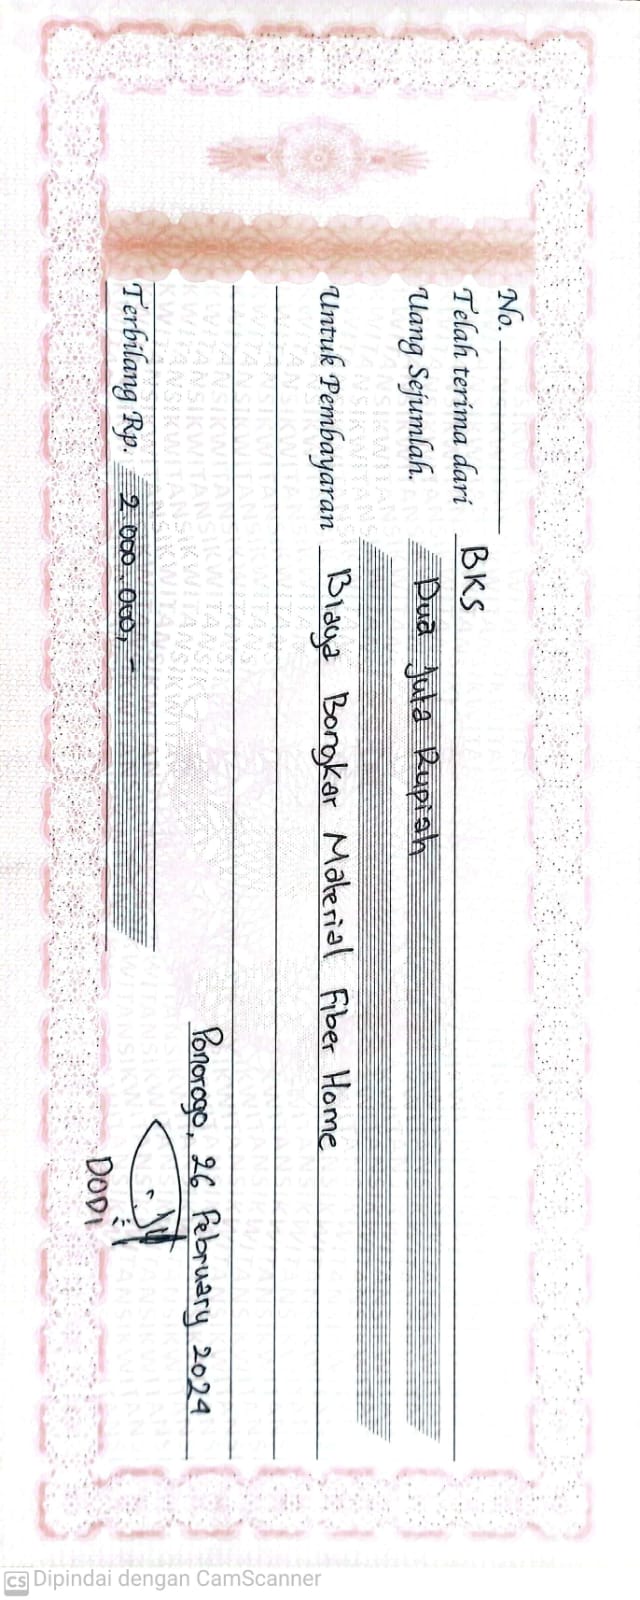 No.
Telah terima dari BKS
Uang Sejumlah. Dua Juta Rupiah
Untuk Pembayaran Biaya Bongkar Material Fiber Home
Ponorogo, 26 February 2024
Terbilang Rp. 2.000.000,-
DODI
CS Dipindai dengan CamScanner